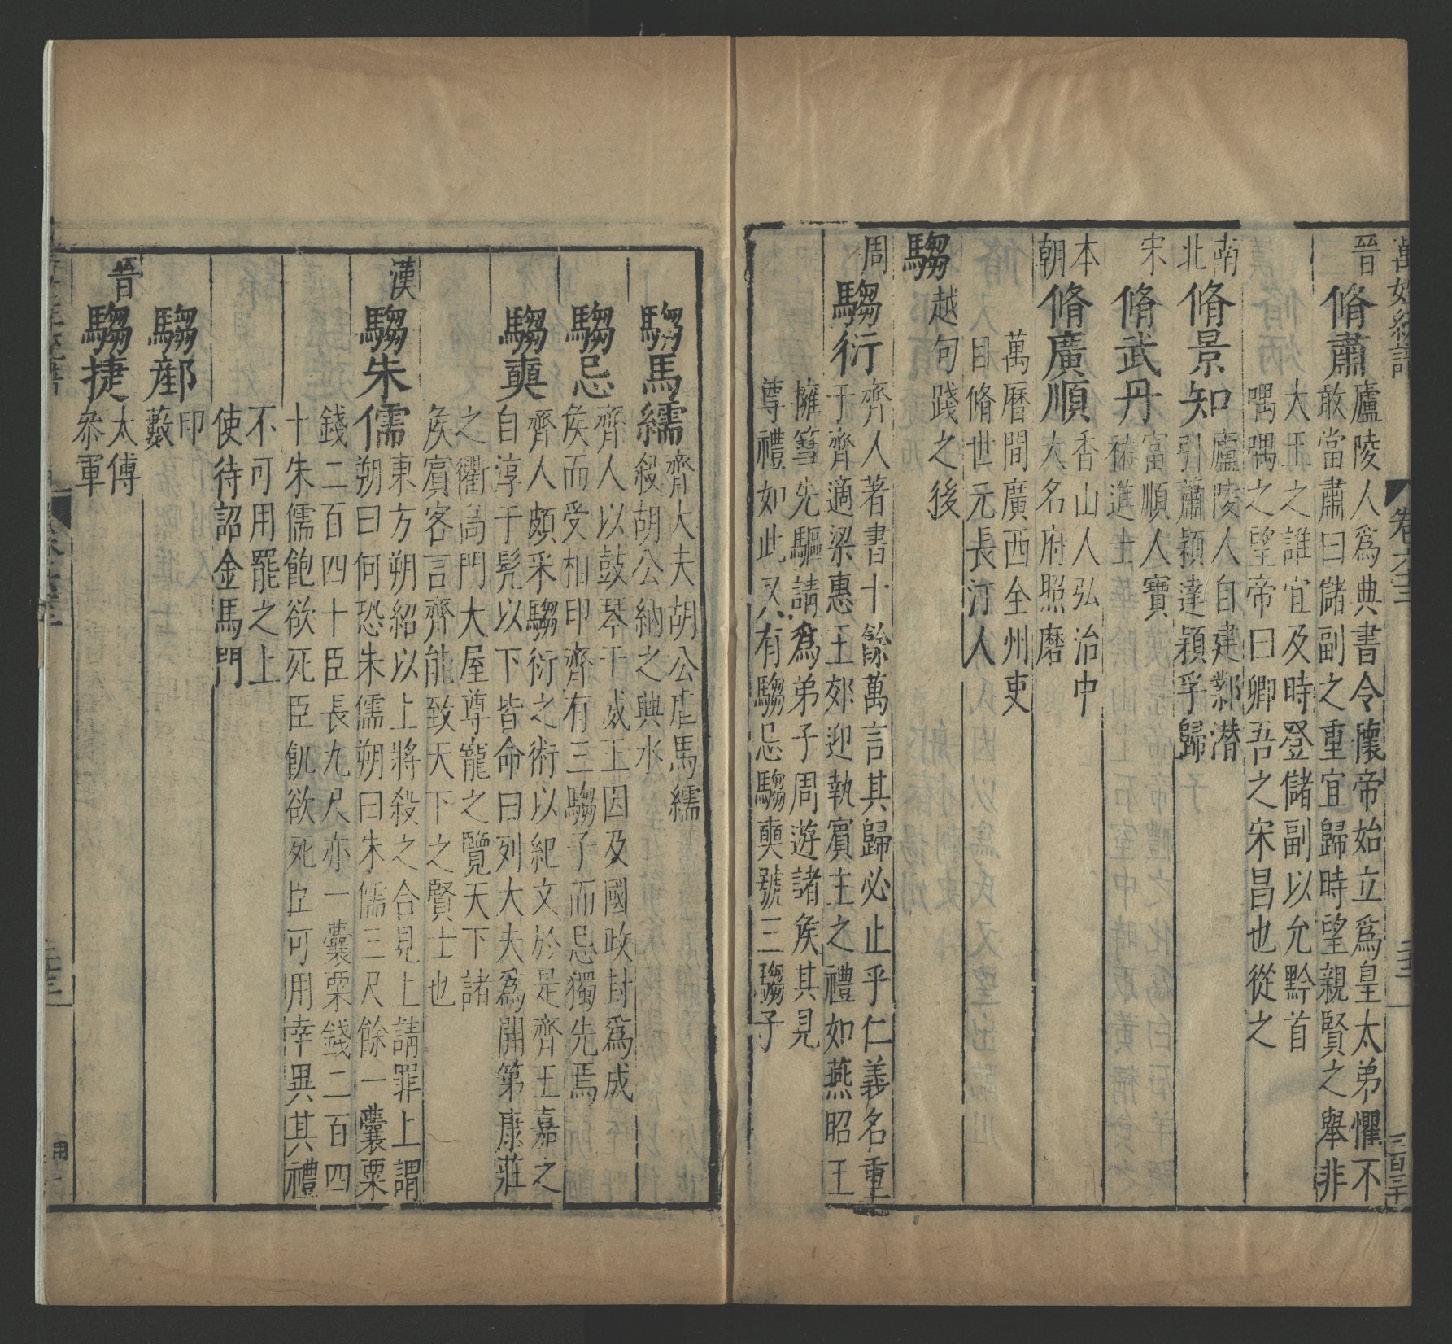 萬姓統譜 卷六十三 三百三十
晉 脩肅 廬陵人爲典書令懷帝始立爲皇太弟懼不
敢當肅曰儲副之重宜歸時望親賢之舉非
大王之誰宜及時登儲副以允黔首
喁喁之望帝曰卿吾之宋昌也從之
南北 脩景知 廬陵人自建鄴潛
引蕭穎達穎孚歸
宋 脩武丹 富順人寶
祐進士
本朝 脩廣順 香山人弘治中
大名府照磨
萬曆間廣西全州吏
目脩世元長汀人
騶 越句踐之後
周 騶衍 齊人著書十餘萬言其歸必止乎仁義名重
于齊適梁惠王郊迎執賓主之禮如燕昭王
擁篲先驅請爲弟子周遊諸侯其見
尊禮如此又有騶忌騶奭號三騶子
騶馬繻 齊大夫胡公虐馬繻
殺胡公納之具水
騶忌 齊人以鼓琴干威王因及國政封爲成
侯而受相印齊有三騶子而忌獨先焉
騶奭 齊人頗采騶衍之術以紀文於是齊王嘉之
自淳于髡以下皆命曰列大夫爲開第康莊
之衢高門大屋尊寵之覽天下諸
侯賓客言齊能致天下之賢士也
漢 騶朱儒 東方朔紹以上將殺之合見上請罪上謂
朔曰何恐朱儒朔曰朱儒三尺餘一囊粟
錢二百四十臣長九尺亦一囊粟錢二百四
十朱儒飽欲死臣飢欲死臣可用幸異其禮
不可用罷之上
使待詔金馬門
騶郪 印
藪
晉 騶捷 太傅
叅軍